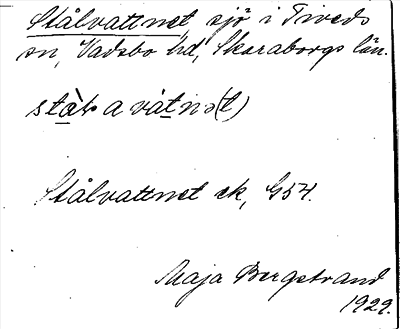 Stålvattnet sjö i Tiveds
sn, Vadsbo hd, Skaraborgs län.
Stålvattnet ek, G54.
Maja Bergstrand
1929.